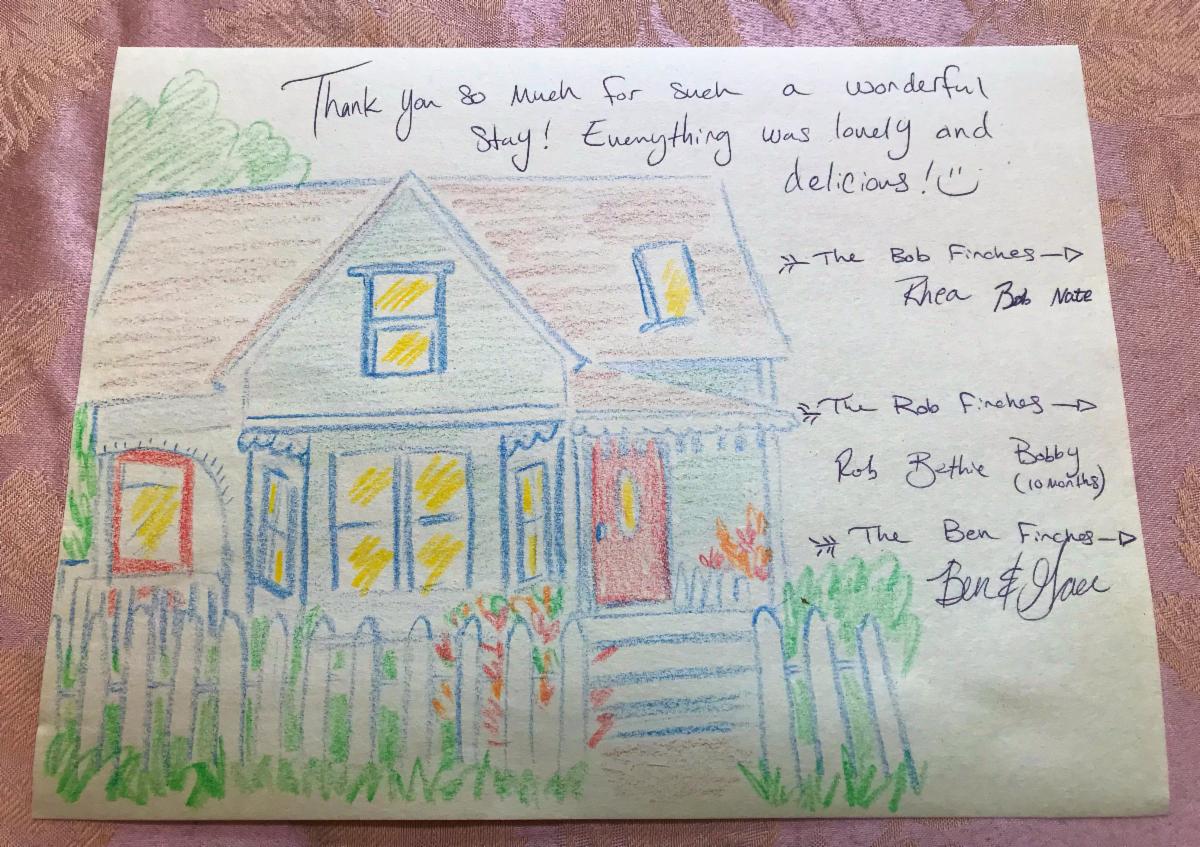 Thank you so much for such a wonderful
stay! Everything was lovely and
delicious!
The Bob Finches
Rhea Bob Nate
The Rob Finches
Rob Bethie Bobby
(10 months)
The Ben Finches
Ben &